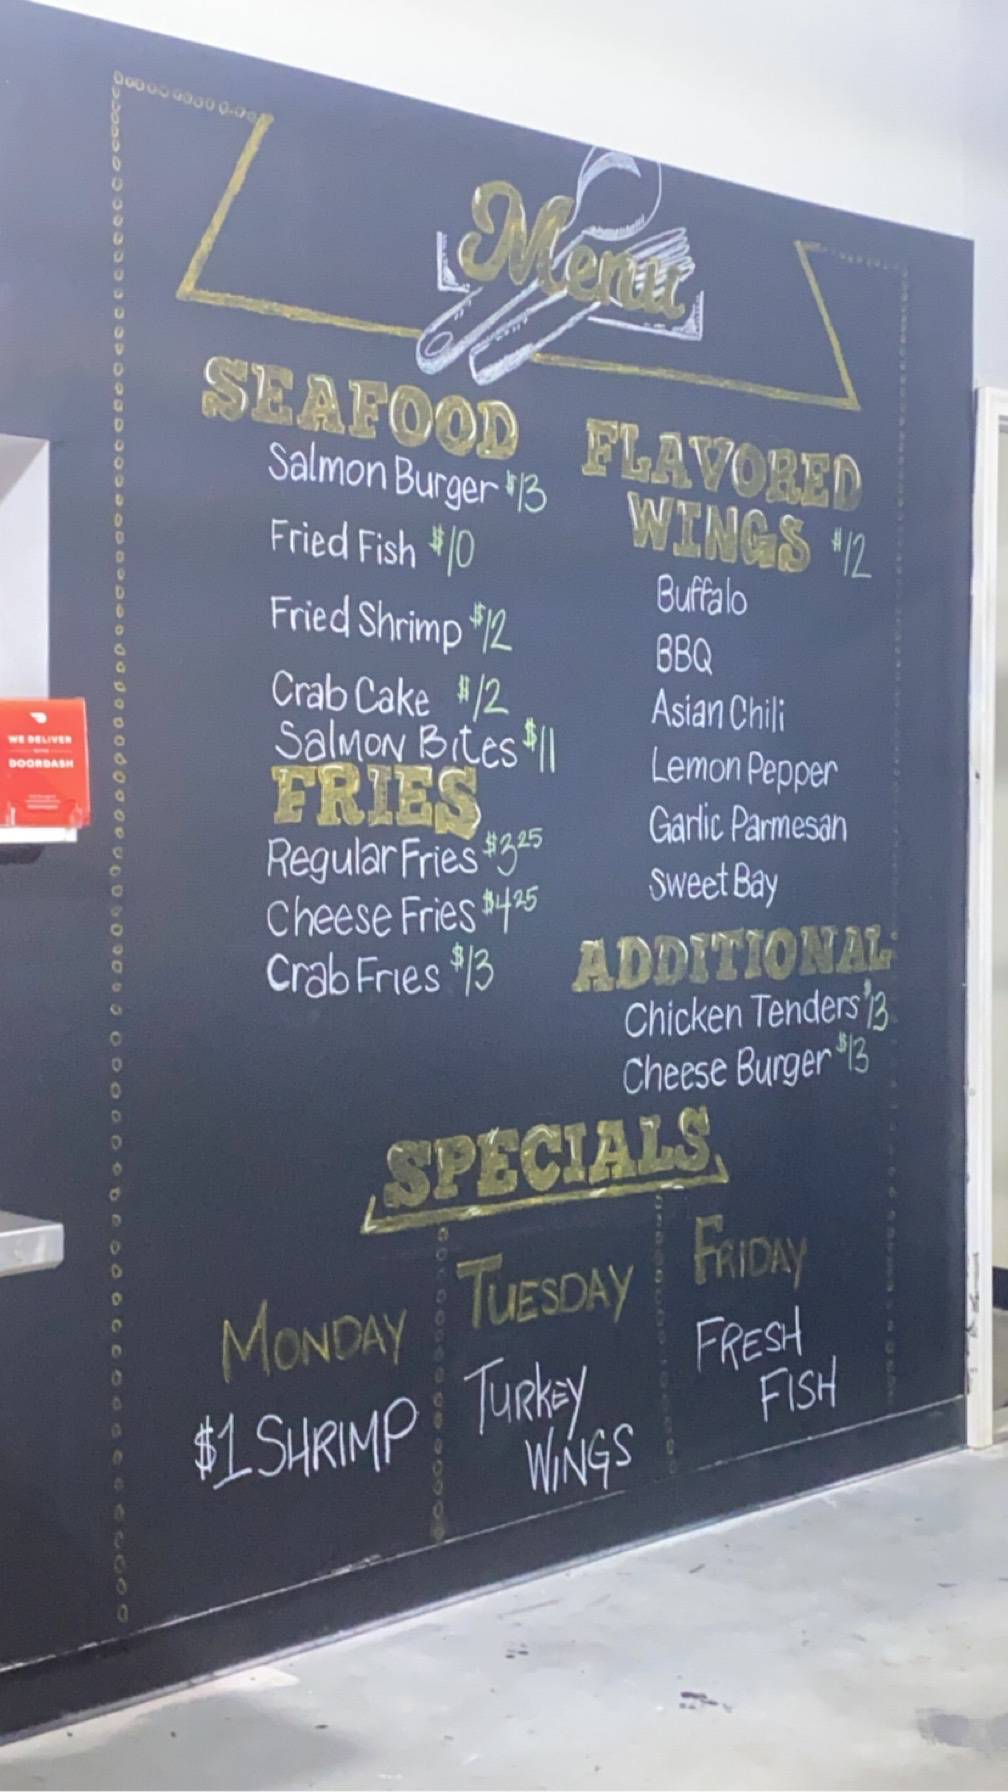 Menu
SEAFOOD
Salmon Burger $13
Fried Fish $10
Fried Shrimp $12
Crab Cake $12
Salmon Bites $11
FRIES
Regular Fries $3.25
Cheese Fries $4.25
Crab Fries $13
FLAVORED
WINGS $12
Buffalo
BBQ
Asian Chili
Lemon Pepper
Garlic Parmesan
Sweet Bay
ADDITIONAL
Chicken Tenders $13
Cheese Burger $13
SPECIALS
MONDAY
$1 SHRIMP
TUESDAY
TURKEY
WINGS
FRIDAY
FRESH
FISH
WE DELIVER
DOORDASH